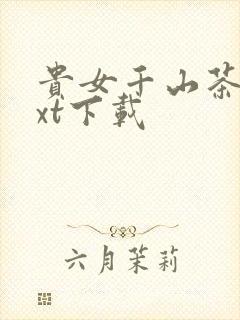 貴女千山茶
xt下載
六月茉莉